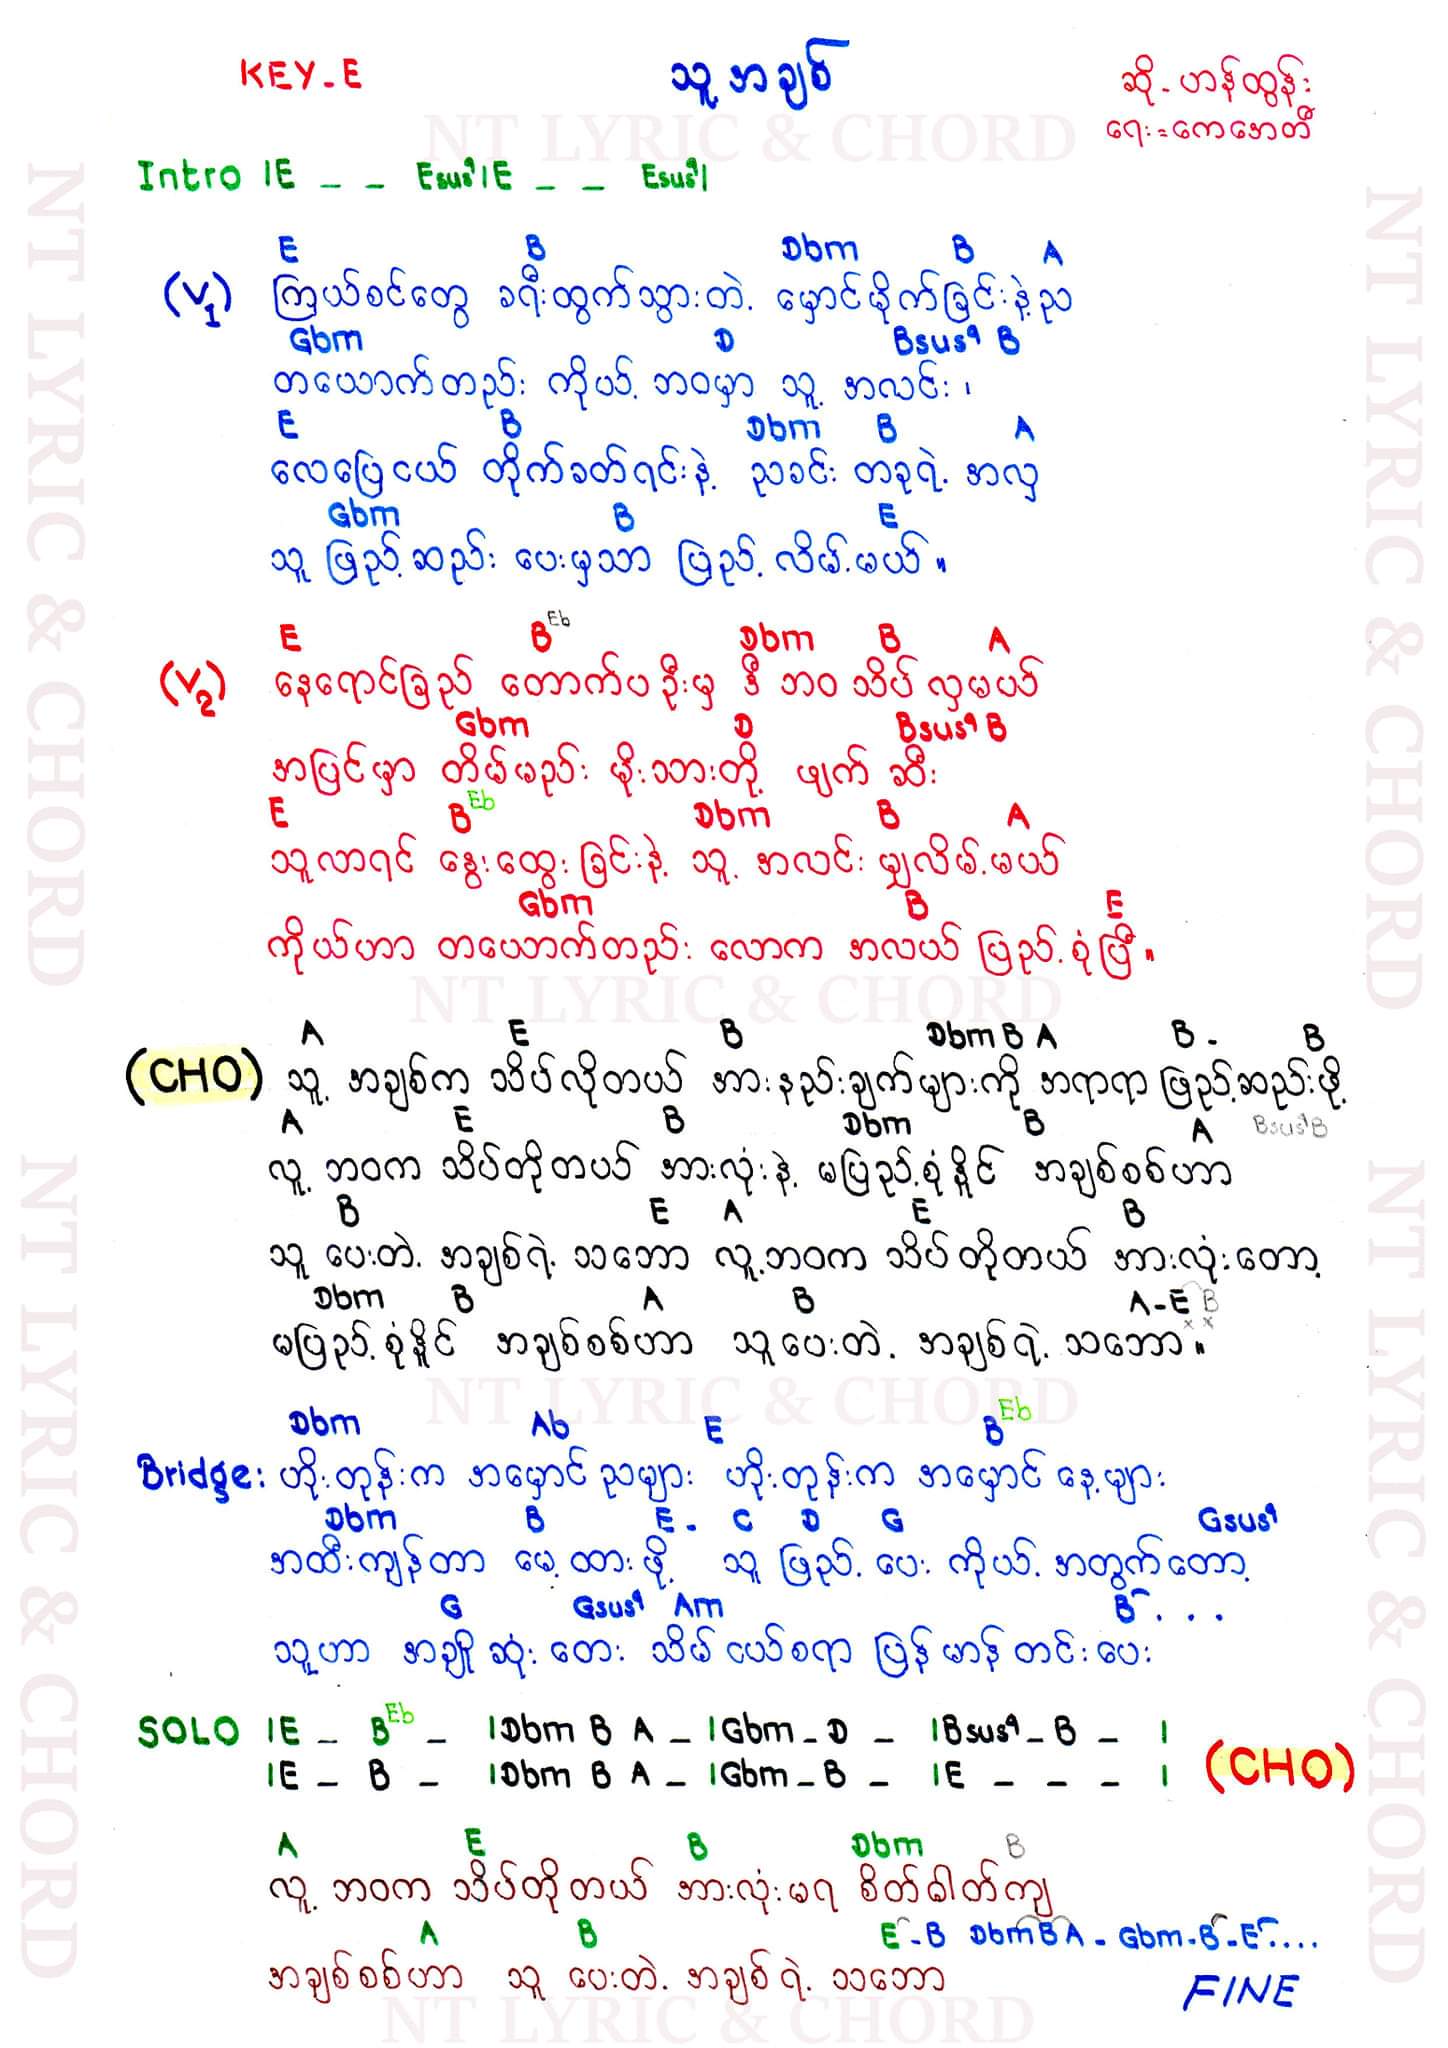 KEY-E သူ့အချစ် ဆို-ဟန်ထွန်း
NT LYRIC & CHORD
ရေး=ကေအေတီ
Intro |E _ _ Esus4|E _ _ Esus4|
E B Dbm B A
(V1) ကြယ်စင်တွေ ခရီးထွက်သွားတဲ့ မှောင်မိုက်ခြင်းနဲ့ည
Gbm D Bsus4 B
တယောက်တည်း ကိုယ့်ဘဝမှာ သူ့ အလင်း ၊
E B Dbm B A
လေပြေငယ် တိုက်ခတ်ရင်းနဲ့ ညခင်း တခုရဲ့ အလှ
Gbm B E
သူ ဖြည့်ဆည်း ပေးမှသာ ပြည့်လိမ့်မယ် ။
E B Eb Dbm B A
(V2) နေရောင်ခြည် တောက်ပဦးမှ ဒီဘဝ သိပ်လှမယ်
Gbm D Bsus4 B
အပြင်မှာ တိမ်မည်း မိုးသားတို့ ဖျက် ဆီး
E B Eb Dbm B A
သူလာရင် နွေးထွေးခြင်းနဲ့ သူ့ အလင်း မျှလိမ့်မယ်
Gbm B E
ကိုယ်ဟာ တယောက်တည်း လောက အလယ် ပြည့်စုံပြီ။
NT LYRIC & CHORD
A E B Dbm B A B - B
(CHO) သူ့ အချစ်က သိပ်လိုတယ် အားနည်းချက်များကို အရာရာ ဖြည့်ဆည်းဖို့
A E B Dbm B A Bsus4B
လူ့ ဘဝက သိပ်တိုတယ် အားလုံးနဲ့ မပြည့်စုံနိုင် အချစ်စစ်ဟာ
B E A E B
သူ ပေးတဲ့ အချစ်ရဲ့ သဘော လူ့ဘဝက သိပ်တိုတယ် အားလုံးတော့
Dbm B A B A-E B
မပြည့်စုံနိုင် အချစ်စစ်ဟာ သူပေးတဲ့ အချစ်ရဲ့ သဘော။
NT LYRIC & CHORD
Dbm Ab E B Eb
Bridge: ဟိုးတုန်းက အမှောင်ညများ ဟိုးတုန်းက အမှောင်နေ့များ
Dbm B E - C D G Gsus4
အထီးကျန်တာ မေ့ထားဖို့ သူ ဖြည့် ပေး ကိုယ့် အတွက်တော့
G Gsus4 Am B . . .
သူဟာ အချိုဆုံး တေး သိမ်ငယ်စရာ ပြန်မာန်တင်းပေး
SOLO |E _ B Eb _ |Dbm B A _ |Gbm _ D _ |Bsus4 _ B _ |
|E _ B _ |Dbm B A _ |Gbm _ B _ |E _ _ _ | (CHO)
A E B Dbm B
လူ့ ဘဝက သိပ်တိုတယ် အားလုံးမရ စိတ်ဓါတ်ကျ
A B E-B DbmBA-Gbm-B-E....
အချစ်စစ်ဟာ သူ ပေးတဲ့ အချစ်ရဲ့ သဘော
FINE
NT LYRIC & CHORD
NT LYRIC & CHORD
NT LYRIC & CHORD
NT LYRIC & CHORD
NT LYRIC & CHORD